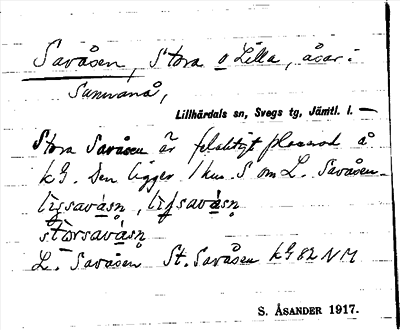 Savåsen, Stora o Lilla, åsar i
Lillhärdals sn, Svegs tg, Jämtl. l.
Stora Savåsen är felaktigt placerad å
kG. Den ligger 1 km S om L. Savåsen.
L. Savåsen St. Savåsen kG 82 NM
S. ÅSANDER 1917.